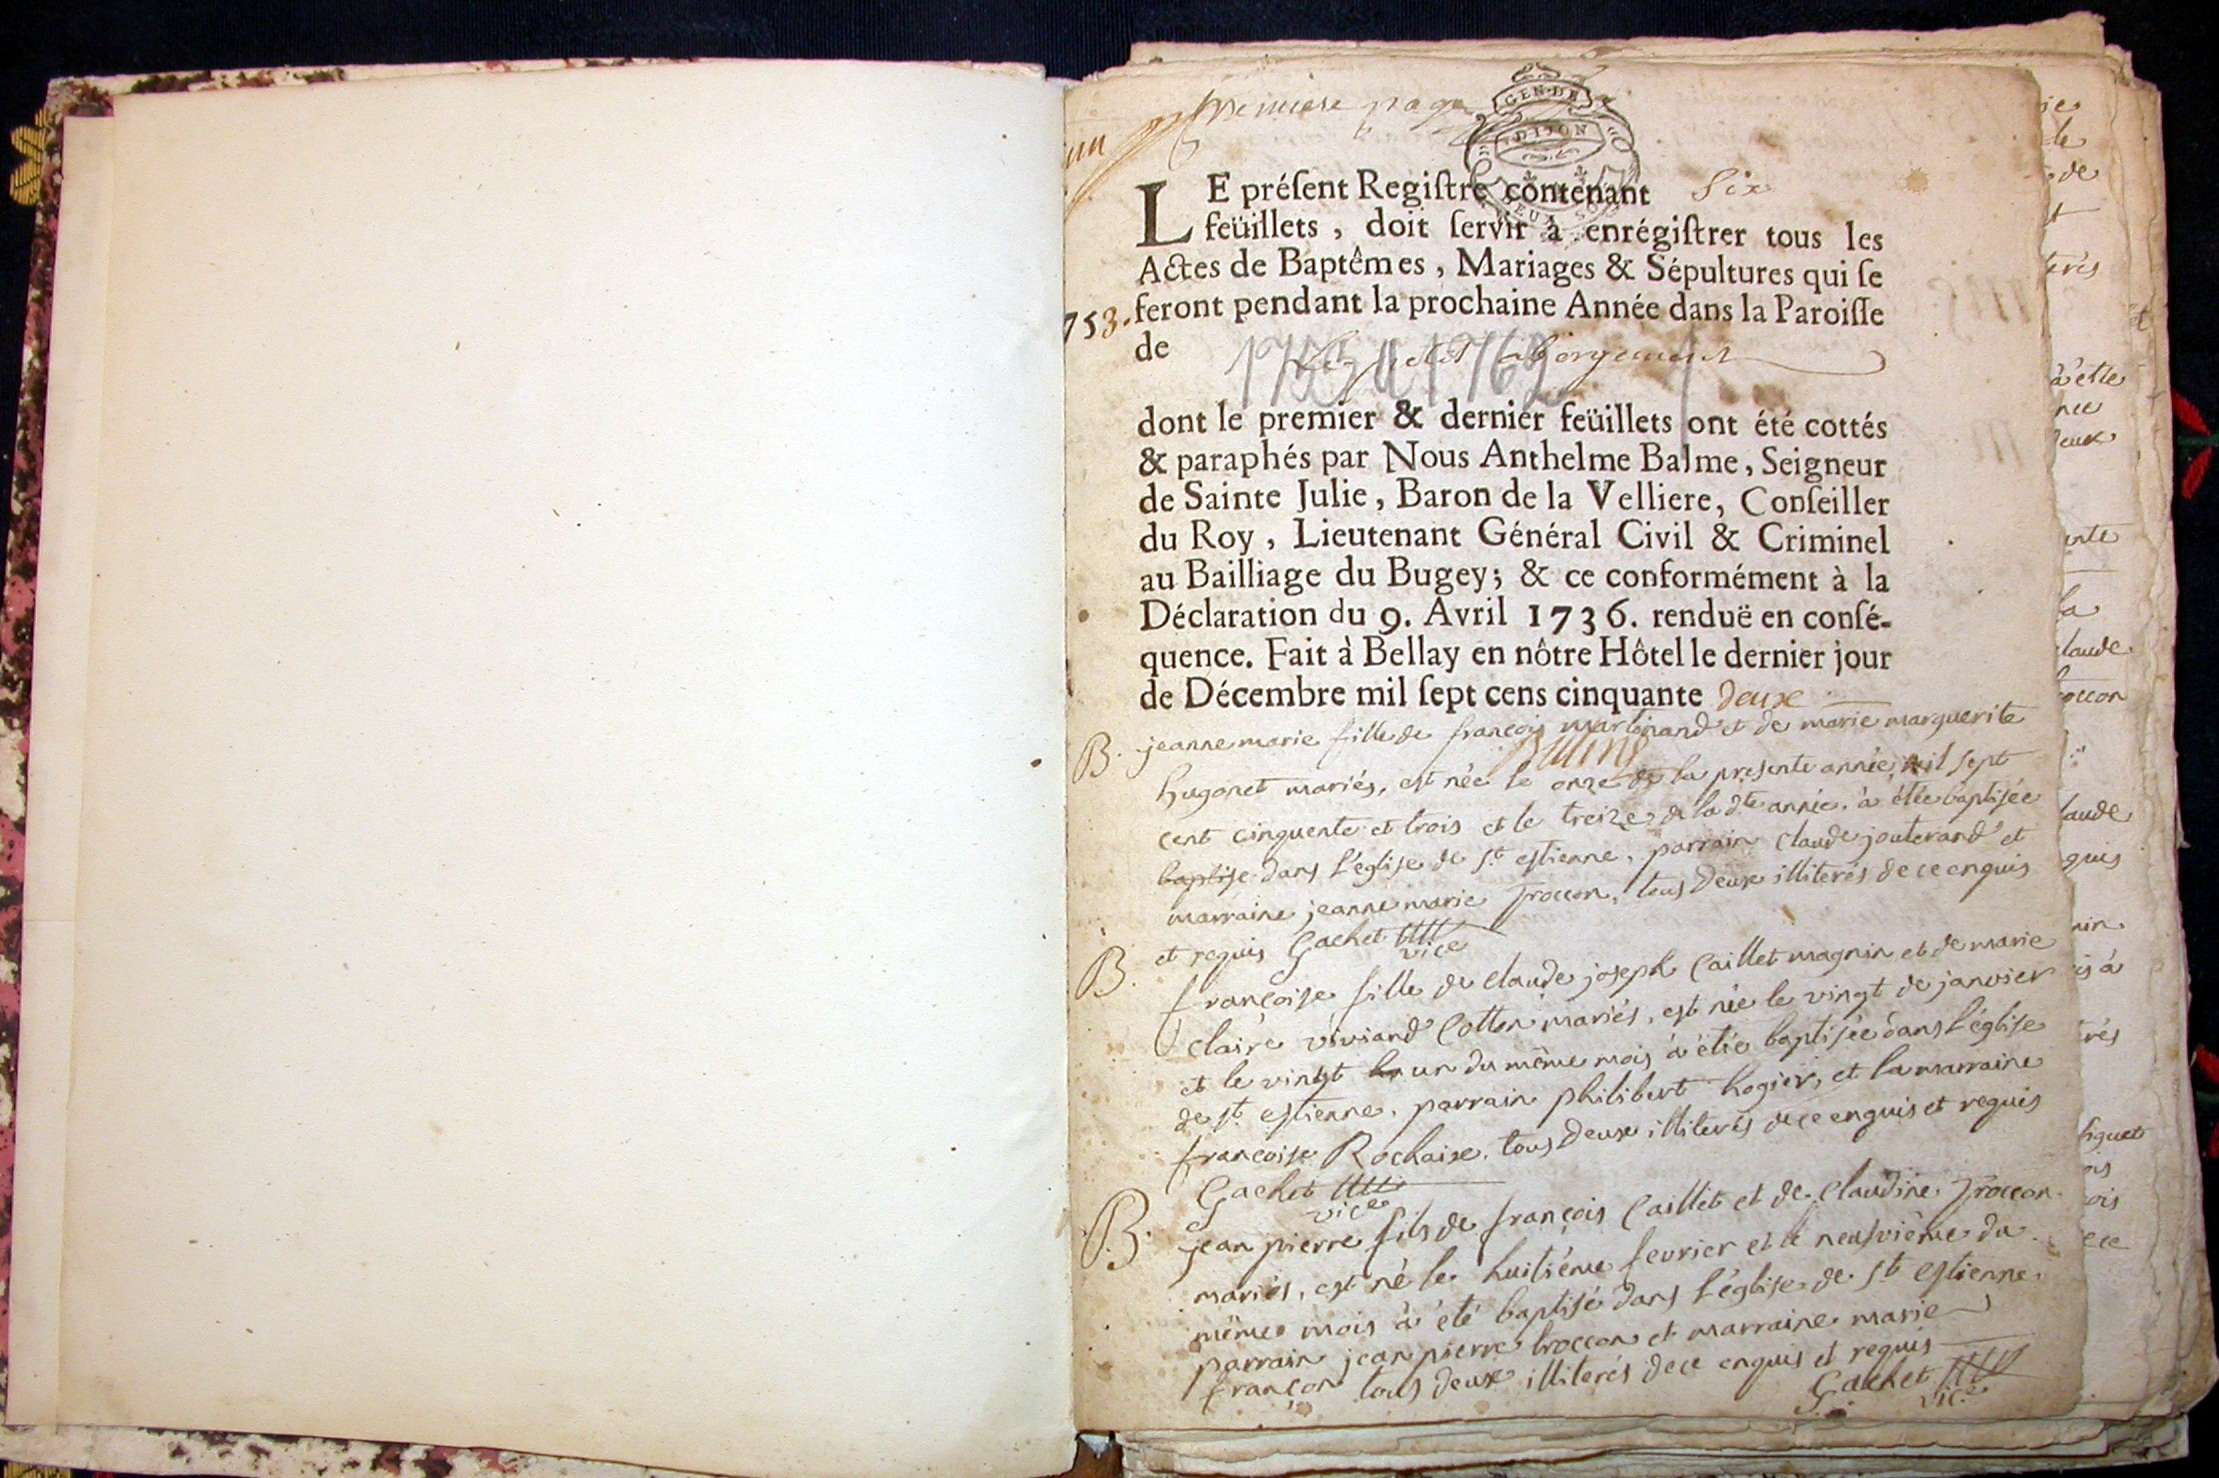 un
premiere page
GEN.DE
DIJON
DEUX SOLS
LE préſent Regiſtre contenant Six
feüillets, doit ſervir à enrégiſtrer tous les
Actes de Baptêmes, Mariages & Sépultures qui ſe
753. feront pendant la prochaine Année dans la Paroiſſe
de Le petit abergement
1753 a 1762
dont le premier & dernier feüillets ont été cottés
& paraphés par Nous Anthelme Balme, Seigneur
de Sainte Julie, Baron de la Velliere, Conſeiller
du Roy, Lieutenant Général Civil & Criminel
au Bailliage du Bugey; & ce conformément à la
Déclaration du 9. Avril 1736. renduë en conſé-
quence. Fait à Bellay en nôtre Hôtel le dernier jour
de Décembre mil ſept cens cinquante deux
B. jeanne marie fille de françois martinand et de marie marguerite
hugonet mariés, est née le onze de la presente année mil sept
cent cinquente et trois et le treize de la dte année. à étée baptisée
baptise dans l'église de st estienne, parrain claude jouterand et
marraine jeanne marie troccon, tous deux illiterés de ce enquis
et requis Gachet
vice
B. françoise fille de claude joseph Caillet magnin et de marie
claire viviand Cotton mariés, est née le vingt de janvier
et le vingt un du même mois à étée baptisée dans l'église
de st estienne, parrain philibert hogier, et la marraine
francoise Rochaix. tous deux illiterés de ce enquis et requis
Gachet
vice
B. jean pierre fils de françois Caillet et de claudine troccon
mariés, est né le huitiéme fevrier et le neufviême du
même mois à été baptisé dans l'église de st estienne.
parrain jean pierre troccon et marraine marie
françon tous deux illiterés de ce enquis et requis
Gachet
vice